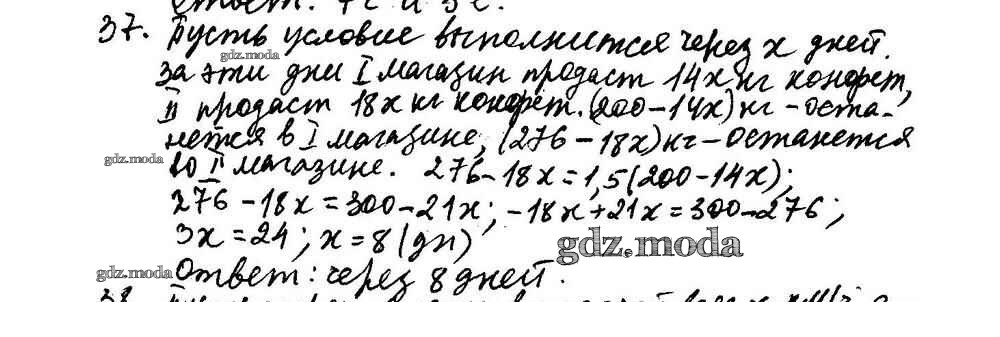 Ответ: 7с и 5с.
37. Пусть условие выполнится через x дней.
gdz.moda
За эти дни I магазин продаст 14x кг конфет,
II продаст 18x кг конфет. (200-14x) кг - оста-
нется в I магазине, (276-18x) кг - останется
gdz.moda
во II магазине. 276-18x=1,5(200-14x);
276-18x=300-21x; -18x+21x=300-276;
3x=24; x=8 (дн)
gdz.moda
gdz.moda
Ответ: через 8 дней.
38.